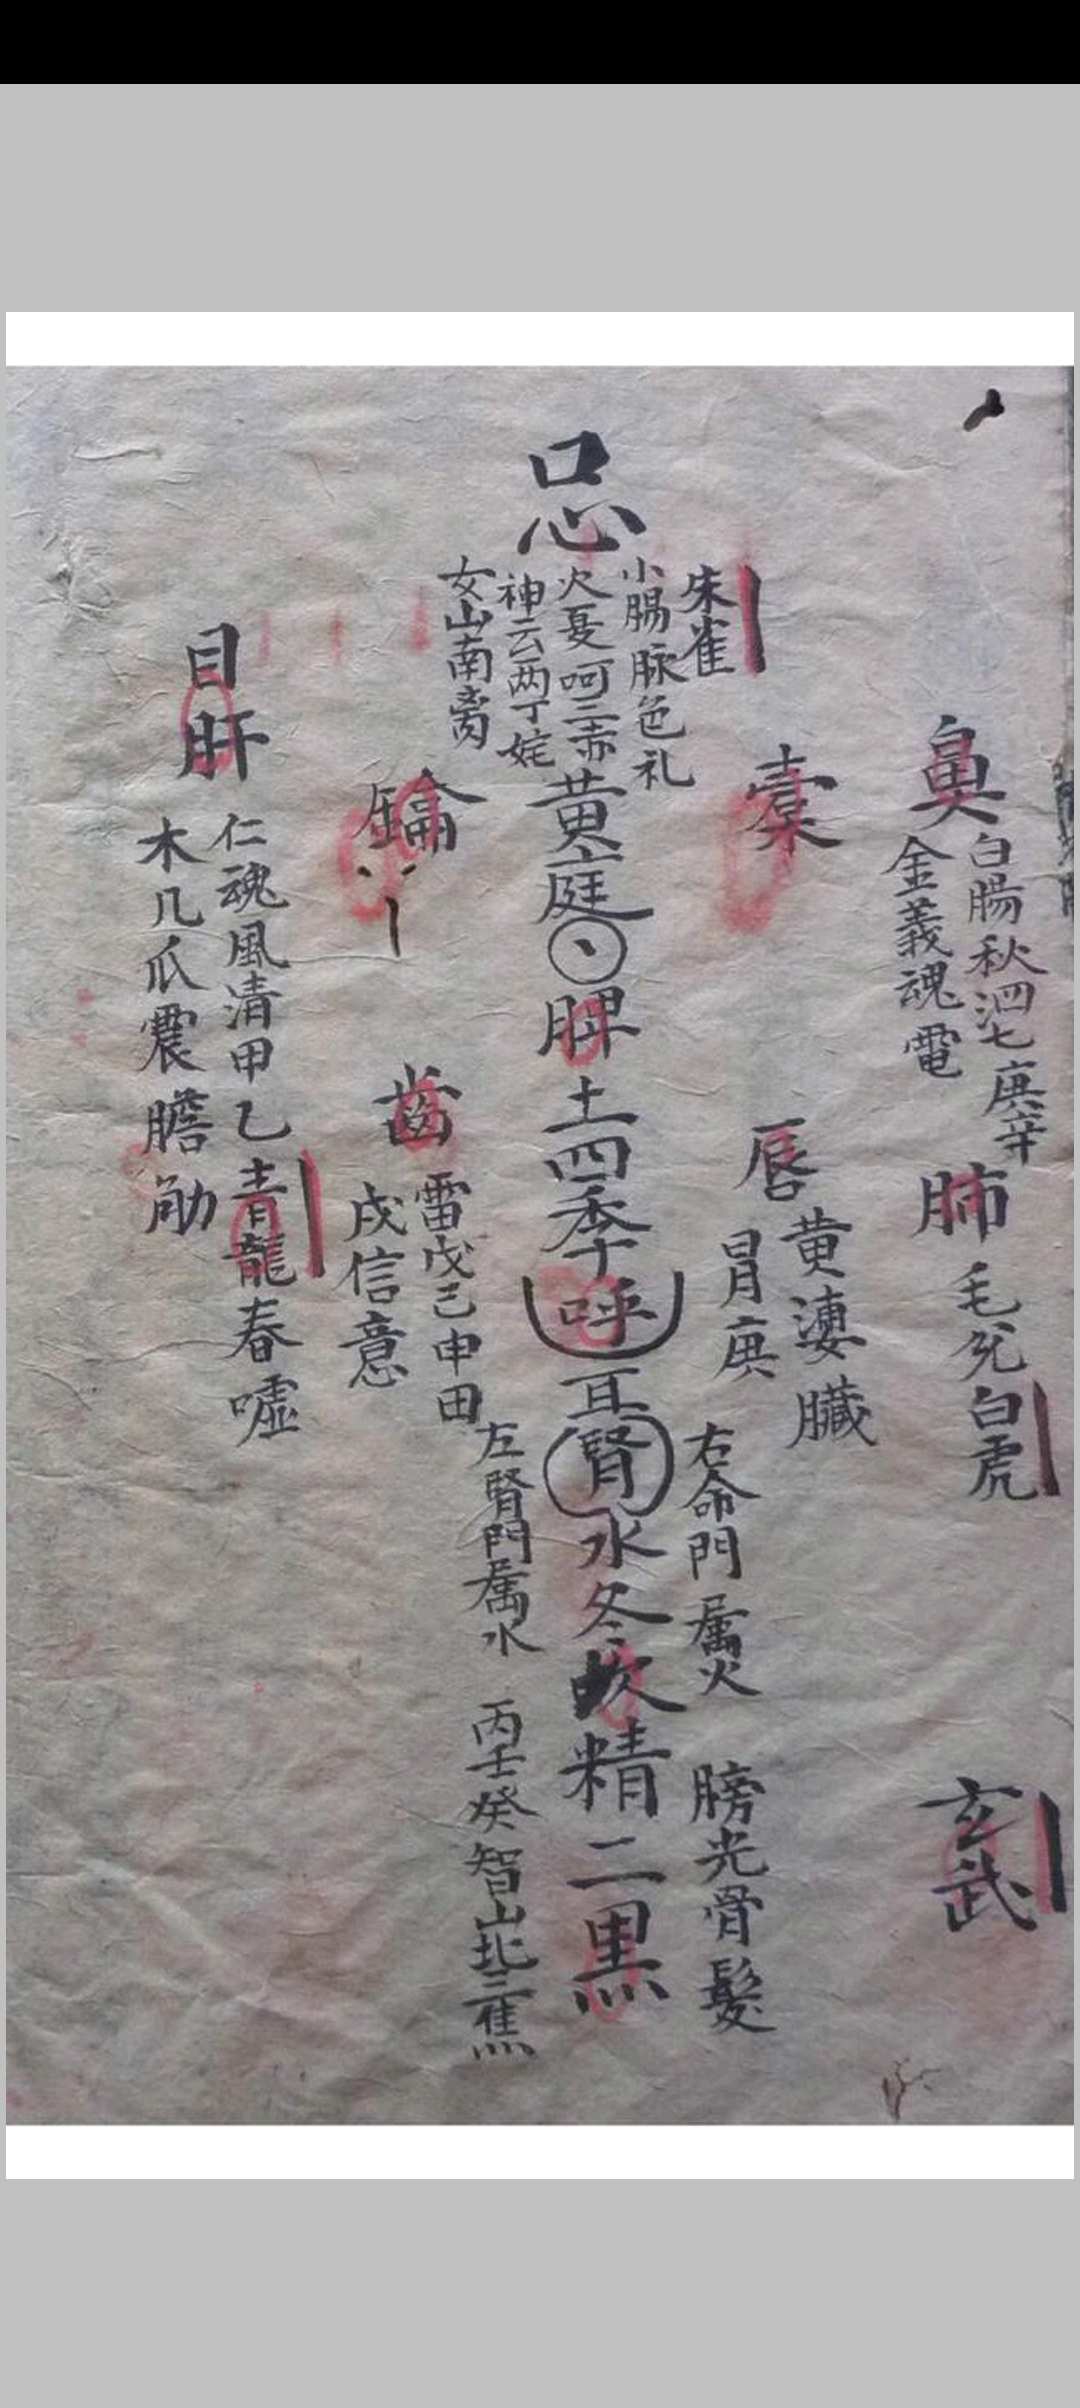 口
心
朱雀
小腸脉色礼
火夏呵三赤
神云两丁姹
女山南离
鼻
白腸秋泗七庚辛
金義魂電
肺
毛兑白虎
玄武
橐
唇
黄漊臟
胃庚
黄庭
脾土四季
呼
耳腎水冬坎精二黑
右命門属火
膀光骨髮
左腎門属水
丙壬癸智山北三焦
鑰
齒
雷戊己申田
戌信意
目肝
仁魂風清甲乙
青龍春噓
木几爪震膽觔